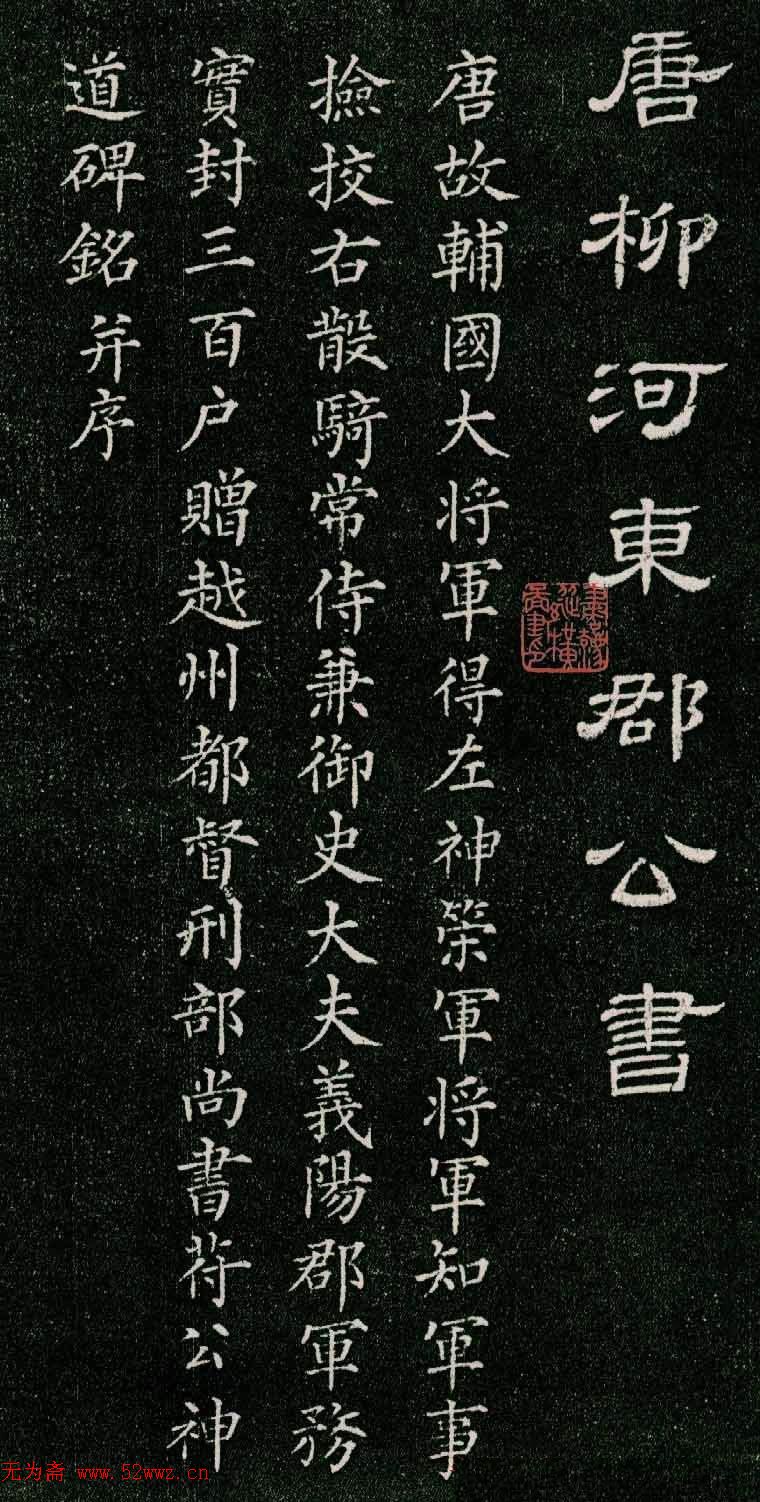 唐柳河東郡公書
唐故輔國大將軍得左神策軍將軍知軍事
撿挍右散騎常侍兼御史大夫義陽郡軍務
實封三百户贈越州都督刑部尚書苻公神
道碑銘并序
无为斋 www.52wwz.cn